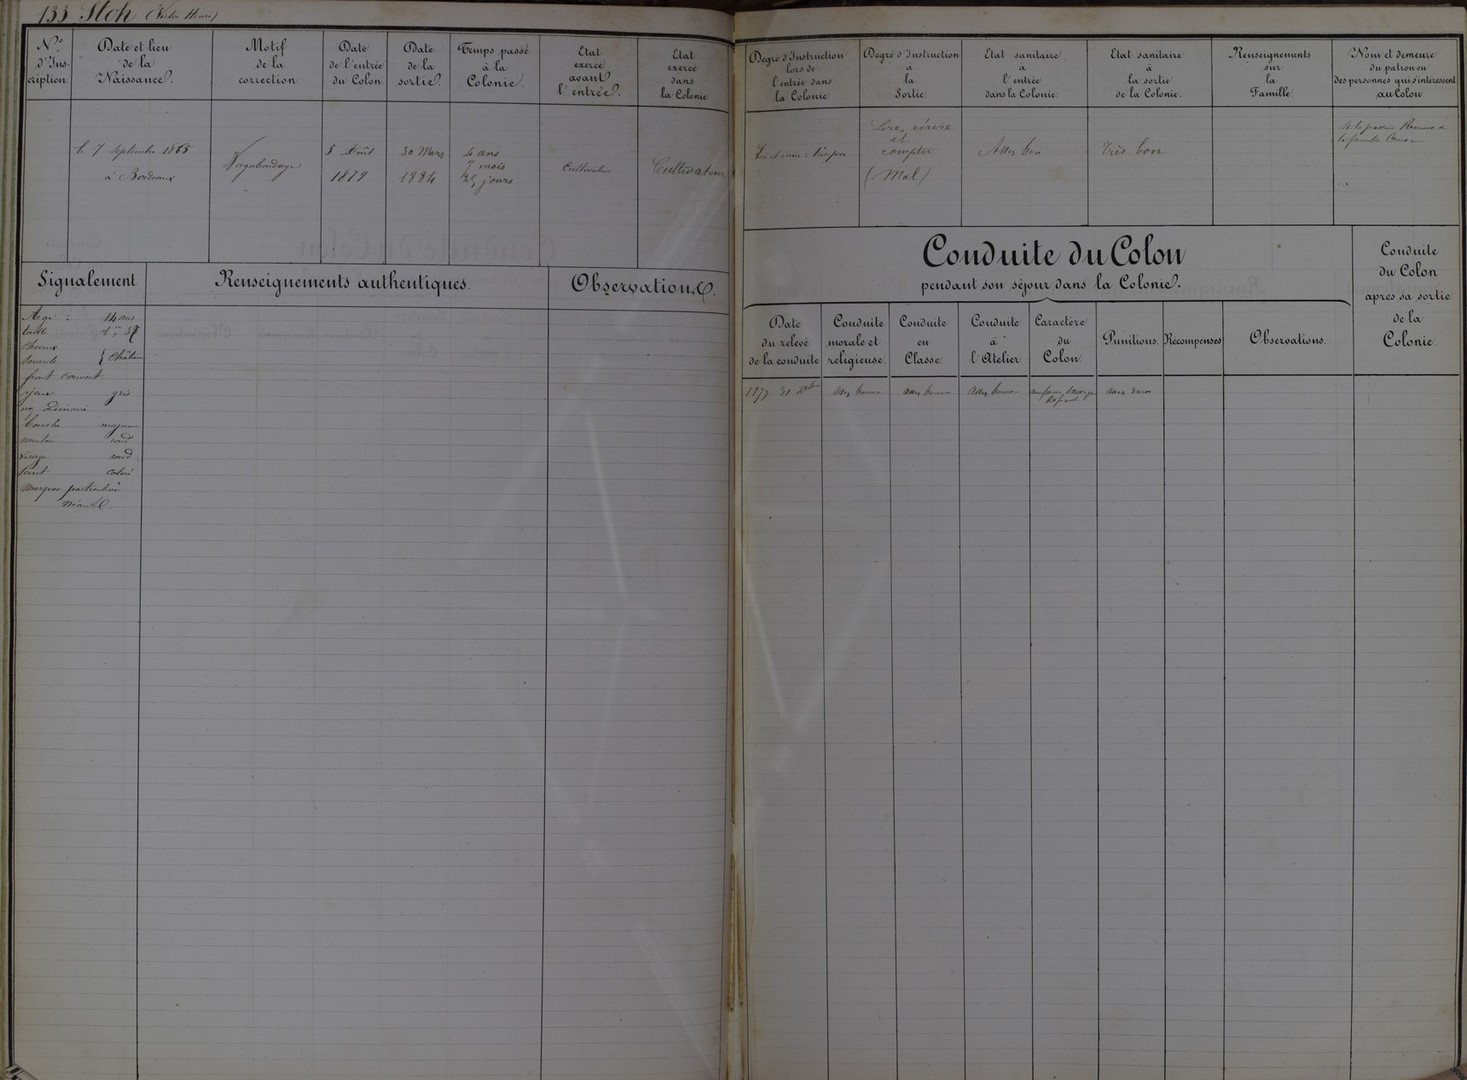 133 Stoh (Victor Henri)
N.° d'Ins-
cription.
Date et lieu
de la
Naissance.
Motif
de la
correction
Date
de l'entrée
du Colon.
Date
de la
sortie.
Temps passé
à la
Colonie.
Etat
exercé
avant
l'entrée.
Etat
exercé
dans
la Colonie
le 7 Septembre 1865
à Bordeaux
Vagabondage
5 Août
1879
30 Mars
1884
4 ans
7 mois
25 jours
Cultivateur
Cultivateur
Signalement
Renseignements authentiques.
Observations.
Age : 14 ans
taille 1m 37
cheveux
sourcils { châtain
front couvert
yeux gris
nez ordinaire
bouche moyenne
menton rond
visage rond
teint coloré
marques particulières
Néant
Degré d'Instruction
lors de
l'entrée dans
la Colonie
Degré d'Instruction
à
la
Sortie.
Etat sanitaire
à
l'entrée
dans la Colonie.
Etat sanitaire
à
la sortie
de la Colonie.
Renseignements
sur
la
Famille
Nom et demeure
du patron ou
des personnes qui s'intéressent
au Colon.
Lire, écrire
et
compter
(Mal)
Assez bon
Très bon
Conduite du Colon
pendant son séjour dans la Colonie.
Conduite
du Colon
après sa sortie
de la
Colonie.
Date
du relevé
de la conduite
Conduite
morale et
religieuse.
Conduite
en
Classe.
Conduite
à
l'Atelier.
Caractère
du
Colon.
Punitions.
Récompenses
Observations.
1879 31 Xbre
assez bonne
assez bonne
assez bonne